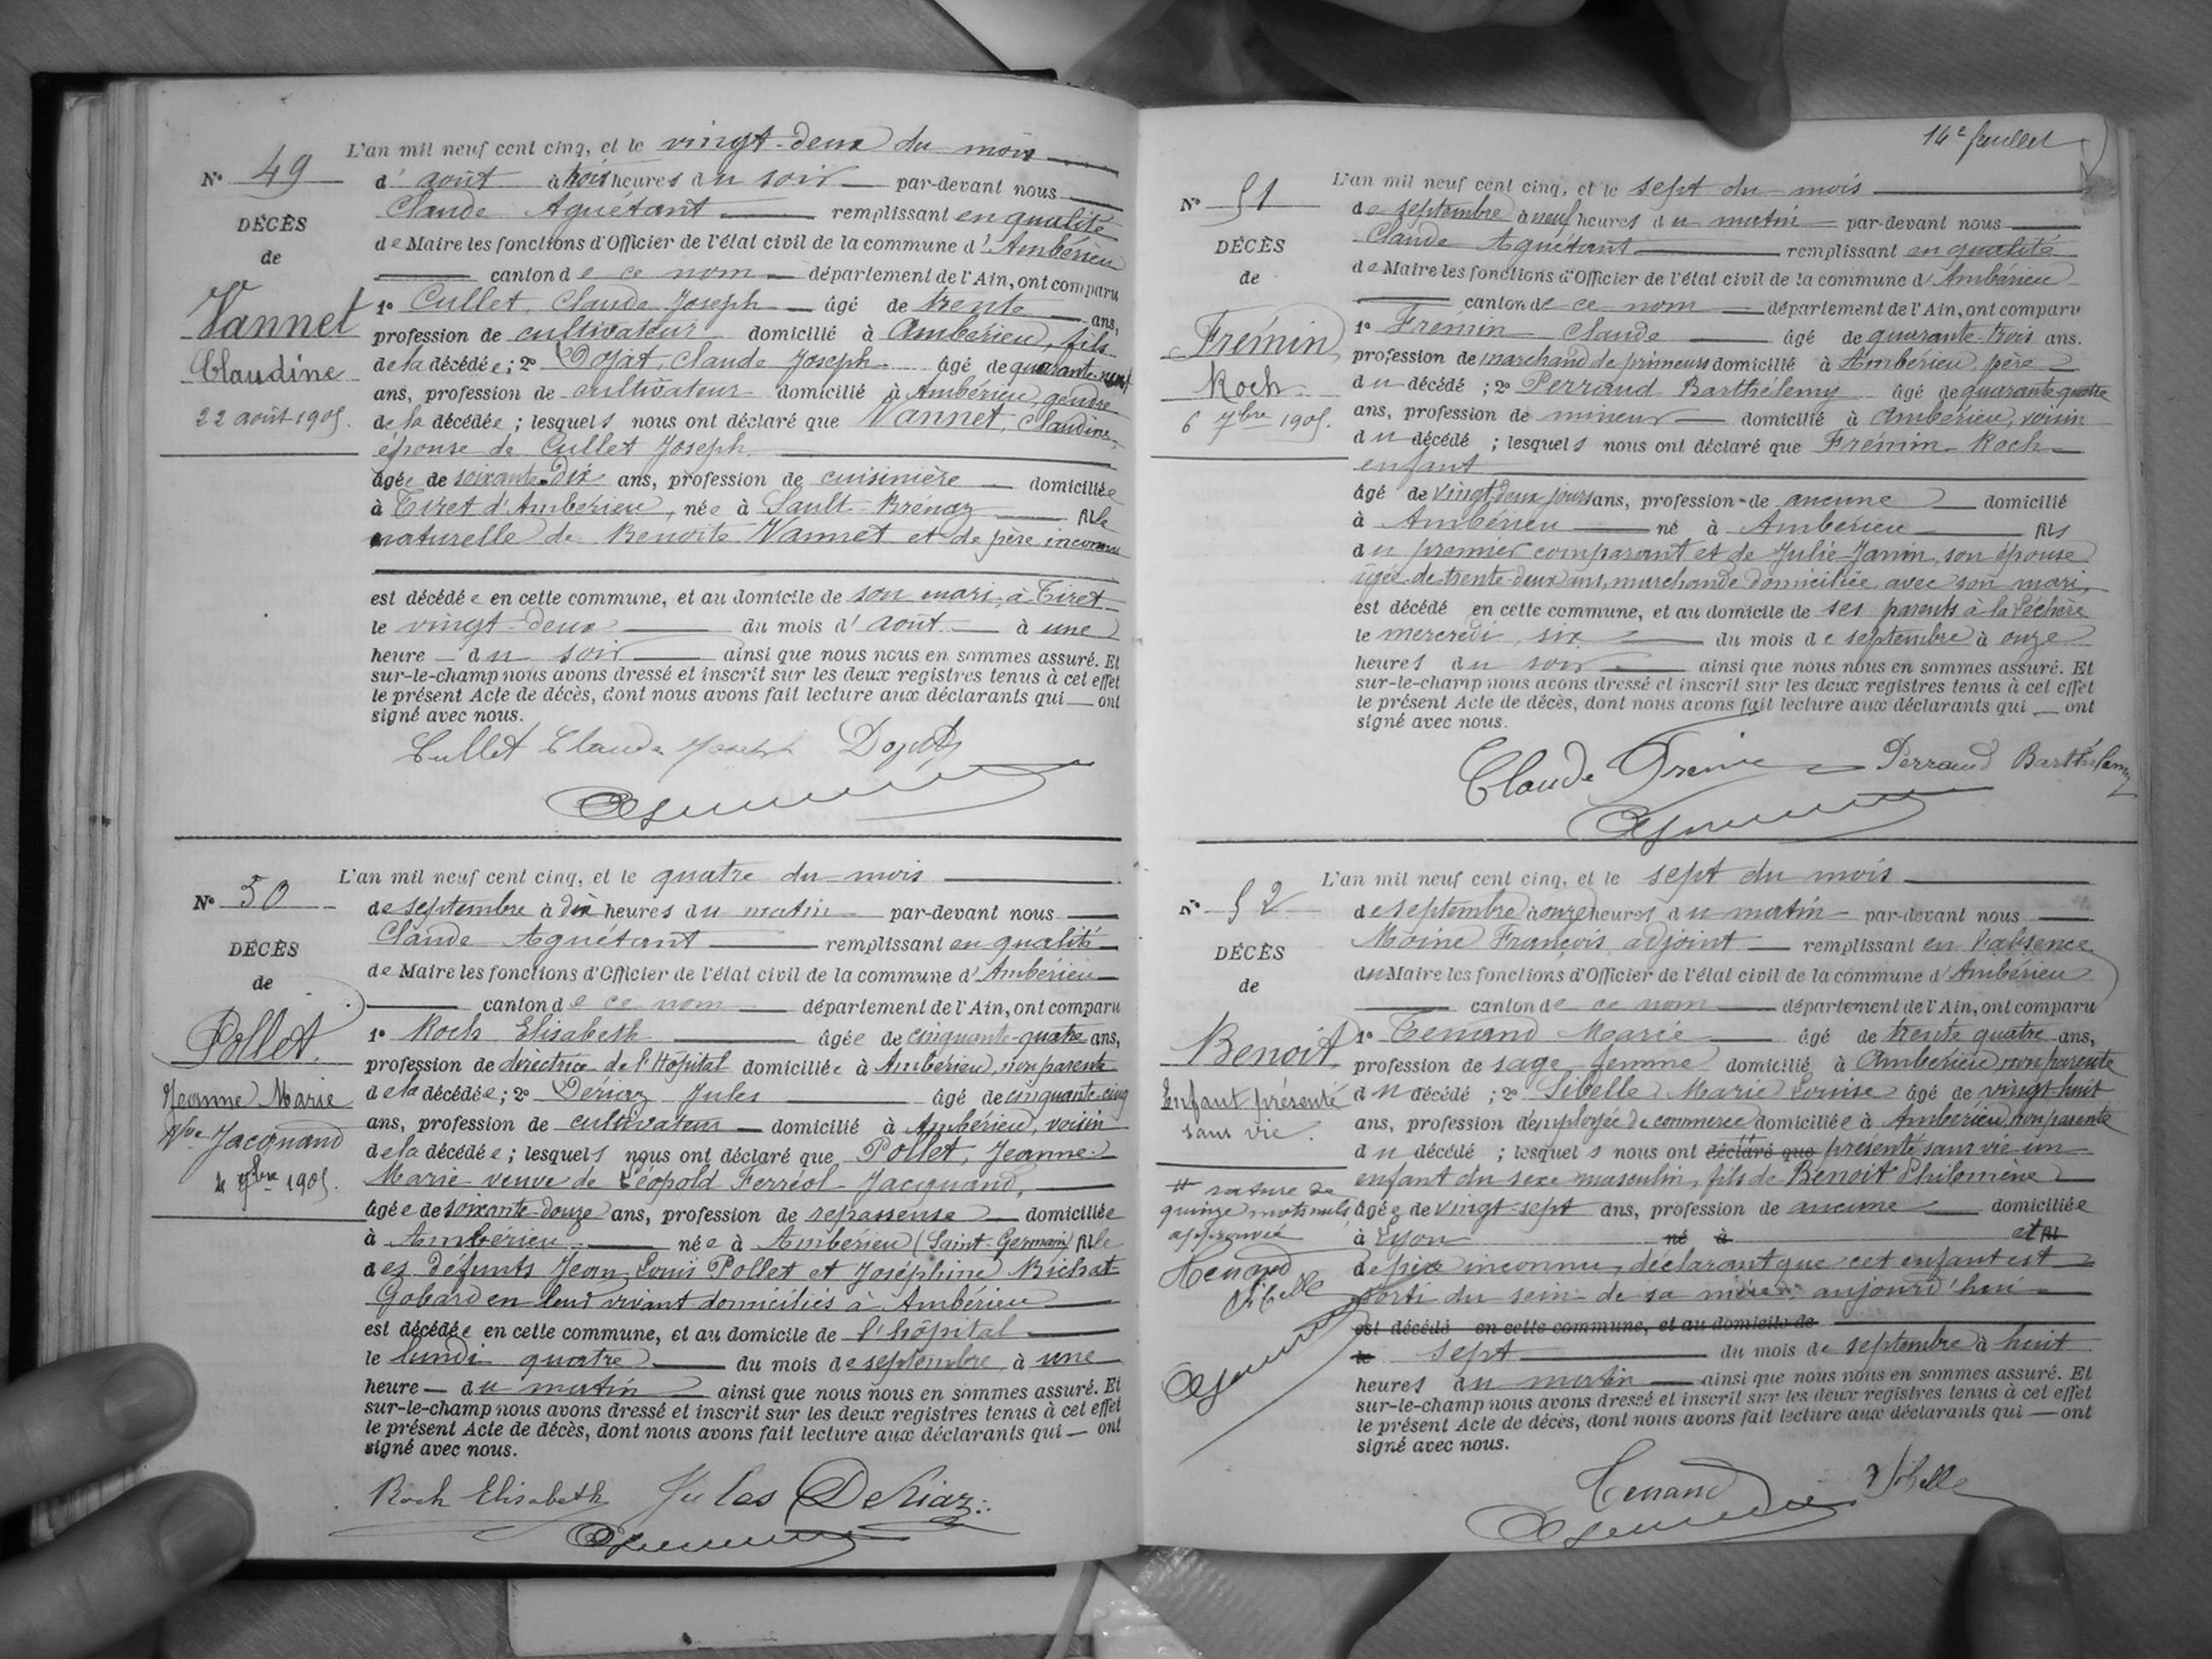 L'an mil neuf cent cinq, et le vingt-deux du mois
N° 49
d'août à trois heures du soir par-devant nous
Claude Aguétant remplissant en qualité
DÉCÈS
de Maire les fonctions d'Officier de l'état civil de la commune d'Ambérieu
de
canton de ce nom département de l'Ain, ont comparu
Vannet
1° Cullet, Claude Joseph âgé de trente ans,
profession de cultivateur domicilié à Ambérieu, fils
Claudine
de la décédée; 2° Dojat, Claude Joseph âgé de quarante-neuf
ans, profession de cultivateur domicilié à Ambérieu, gendre
22 août 1905.
de la décédée; lesquels nous ont déclaré que Vannet, Claudine,
épouse de Cullet Joseph.
âgée de soixante-dix ans, profession de cuisinière domiciliée
à Tiret d'Ambérieu, née à Sault-Brénaz fille
naturelle de Benoite Vannet et de père inconnu
est décédée en cette commune, et au domicile de son mari, à Tiret
le vingt-deux du mois d'août à une
heure du soir ainsi que nous nous en sommes assuré. Et
sur-le-champ nous avons dressé et inscrit sur les deux registres tenus à cet effet
le présent Acte de décès, dont nous avons fait lecture aux déclarants qui ont
signé avec nous.
Cullet Claude Joseph Dojat
L'an mil neuf cent cinq, et le quatre du mois
N° 50
de septembre à dix heures du matin par-devant nous
Claude Aguétant remplissant en qualité
DÉCÈS
de Maire les fonctions d'Officier de l'état civil de la commune d'Ambérieu
de
canton de ce nom département de l'Ain, ont comparu
Pollet
1° Roch Elisabeth âgée de cinquante-quatre ans,
profession de directrice de l'Hôpital domiciliée à Ambérieu, non parente
Jeanne Marie
de la décédée; 2° Dériaz Jules âgé de cinquante-cinq
ans, profession de cultivateur domicilié à Ambérieu, voisin
Vve Jacquand
de la décédée; lesquels nous ont déclaré que Pollet, Jeanne
4 7bre 1905.
Marie veuve de Léopold Ferréol Jacquand,
âgée de soixante-douze ans, profession de repasseuse domiciliée
à Ambérieu née à Ambérieu (Saint-Germain) fille
des défunts Jean Louis Pollet et Joséphine Bichat
Gobard en leur vivant domiciliés à Ambérieu
est décédée en cette commune, et au domicile de l'hôpital
le lundi quatre du mois de septembre à une
heure du matin ainsi que nous nous en sommes assuré. Et
sur-le-champ nous avons dressé et inscrit sur les deux registres tenus à cet effet
le présent Acte de décès, dont nous avons fait lecture aux déclarants qui ont
signé avec nous.
Roch Elisabeth Jules Dériaz
14e feuillet
L'an mil neuf cent cinq, et le sept du mois
N° 51
de septembre à neuf heures du matin par-devant nous
Claude Aguétant remplissant en qualité
DÉCÈS
de Maire les fonctions d'Officier de l'état civil de la commune d'Ambérieu
de
canton de ce nom département de l'Ain, ont comparu
Frémin
1° Frémin Claude âgé de quarante-trois ans.
profession de marchand de primeurs domicilié à Ambérieu, père
Roch
du décédé; 2° Perraud Barthélemy âgé de quarante-quatre
6 7bre 1905.
ans, profession de mineur domicilié à Ambérieu, voisin
du décédé; lesquels nous ont déclaré que Frémin Roch
enfant
âgé de vingt-deux jours ans, profession de aucune domicilié
à Ambérieu né à Ambérieu fils
du premier comparant et de Julie Janin, son épouse
âgée de trente-deux ans, marchande domiciliée avec son mari,
est décédé en cette commune, et au domicile de ses parents à la Léchère
le mercredi six du mois de septembre à onze
heures du soir ainsi que nous nous en sommes assuré. Et
sur-le-champ nous avons dressé et inscrit sur les deux registres tenus à cet effet
le présent Acte de décès, dont nous avons fait lecture aux déclarants qui ont
signé avec nous.
Claude Fremin Perraud Barthélemy
L'an mil neuf cent cinq, et le sept du mois
N° 52
de septembre à onze heures du matin par-devant nous
Moine François, adjoint remplissant en l'absence
DÉCÈS
du Maire les fonctions d'Officier de l'état civil de la commune d'Ambérieu
de
canton de ce nom département de l'Ain, ont comparu
Benoit
1° Tenand Marie âgé de trente quatre ans,
profession de sage femme domicilié à Ambérieu, non parente
Enfant présenté
du décédé; 2° Sibelle Marie Louise âgé de vingt-huit
sans vie.
ans, profession d'employée de commerce domiciliée à Ambérieu, non parente
du décédé; lesquels nous ont déclaré que présenté sans vie un
enfant du sexe masculin, fils de Benoit Philomène
# rature de
quinze mots nuls
approuvée
âgée de vingt-sept ans, profession de aucune domiciliée
à Lyon né à et fil
Tenand
Sibelle
de père inconnu, déclarant que cet enfant est
sorti du sein de sa mère aujourd'hui
est décédé en cette commune, et au domicile de
le sept du mois de septembre à huit
heures du matin ainsi que nous nous en sommes assuré. Et
sur-le-champ nous avons dressé et inscrit sur les deux registres tenus à cet effet
le présent Acte de décès, dont nous avons fait lecture aux déclarants qui ont
signé avec nous.
Tenand Sibelle